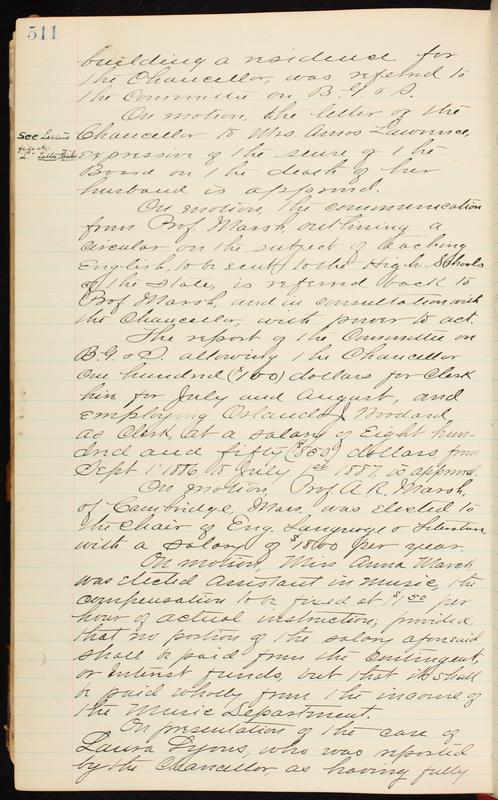 511
building a residence for
the Chancellor, was referred to
the Committee on B. G. & S.
On motion, the letter of the
See Letters
Chancellor to Mrs. Amos Lawrence,
expressive of the sense of the
Board on the death of her
husband is approved.
On motion, the communication
from Prof. Marsh, outlining a
circular on the subject of teaching
English, to be sent to the High Schools
of the State, is referred back to
Prof. Marsh, and in consultation with
the Chancellor, with power to act.
The report of the Committee on
B. G. & S. allowing the Chancellor
one hundred ($100) dollars for clerk
hire for July and August, and
employing Orlando J.
as Clerk, at a salary of Eight hun-
dred and fifty ($850) dollars from
Sept 1st 1886 to July 1st 1887, is approved.
On motion, Prof A. R. Marsh,
of Cambridge, Mass, was elected to
the chair of Eng. Language & Literature
with a salary of $1800 per year.
On motion, Miss Anna March
was elected assistant in music, the
compensation to be fixed at $1.50 per
hour of actual instruction, provided
that no portion of the salary aforesaid
shall be paid from the contingent,
or interest funds, but that it shall
be paid wholly from the income of
the Music Department.
On presentation of the case of
Laura Lyons, who was reported
by the Chancellor, as having fully